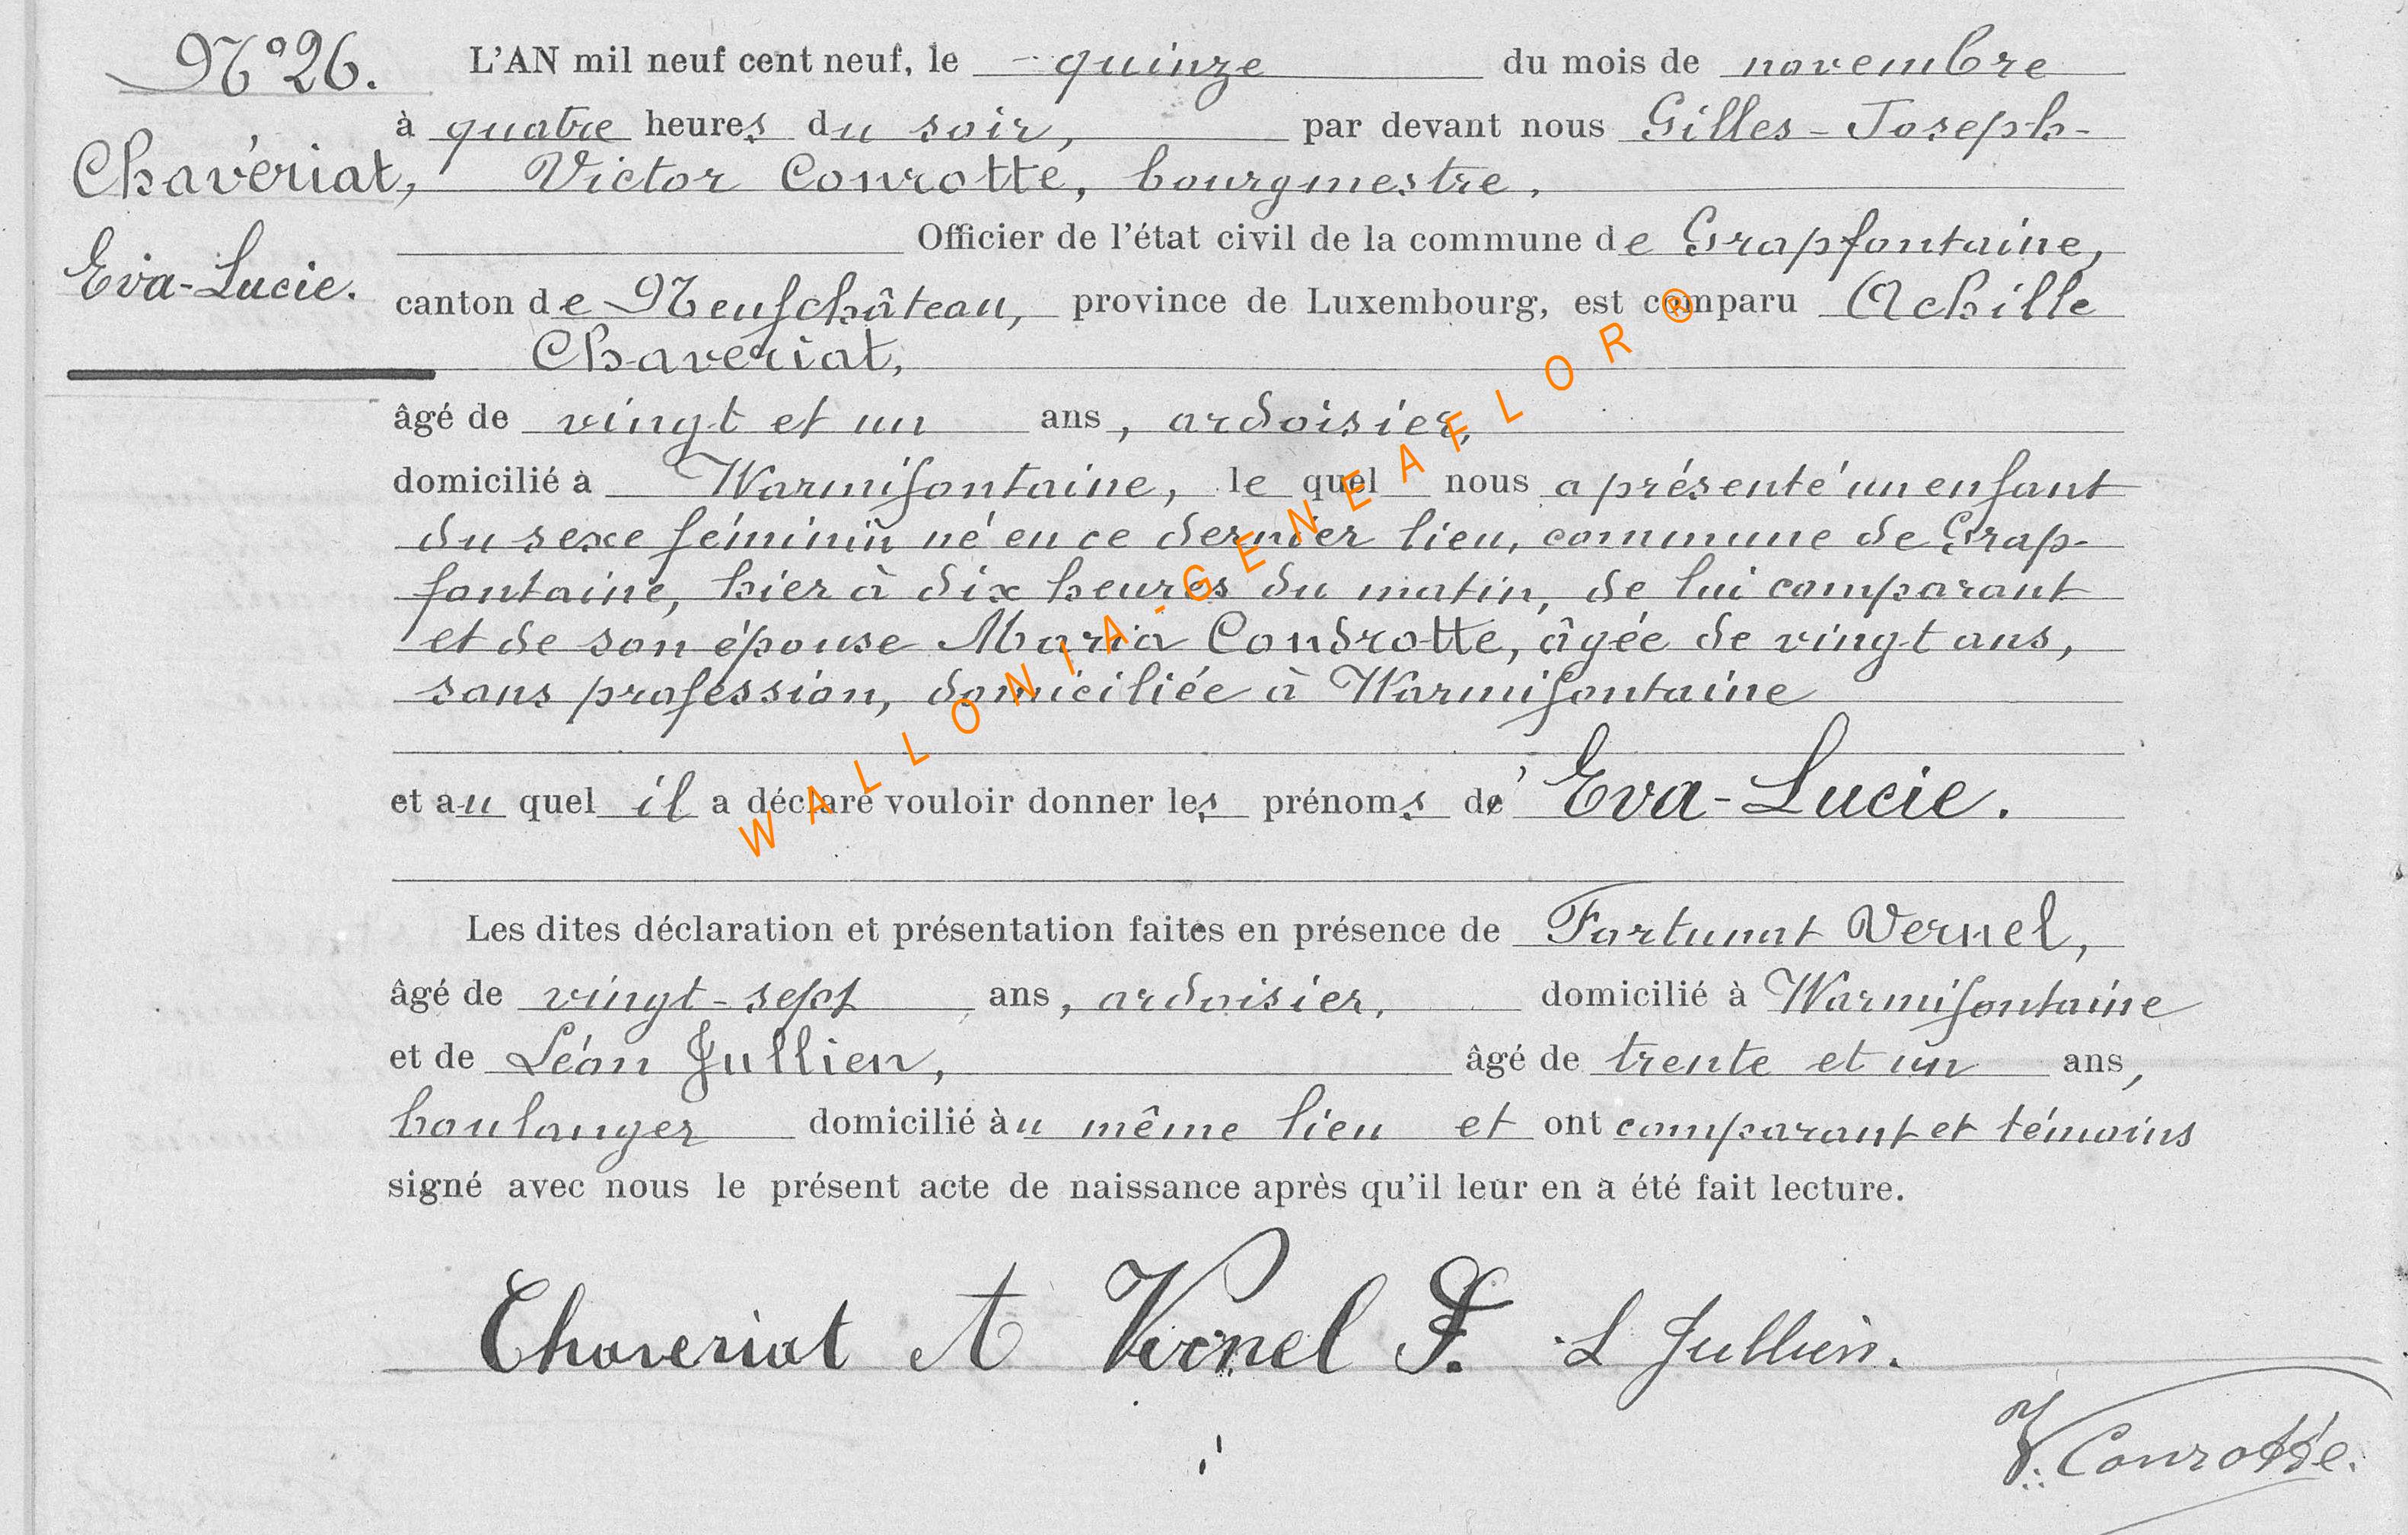 N° 26.
Chavériat,
Eva-Lucie.
L'AN mil neuf cent neuf, le quinze du mois de novembre
à quatre heures du soir, par devant nous Gilles-Joseph-
Victor Conrotte, bourgmestre,
Officier de l'état civil de la commune de Grapfontaine,
canton de Neufchâteau, province de Luxembourg, est comparu Achille
Chavériat,
âgé de vingt et un ans, ardoisier,
domicilié à Warmifontaine, le quel nous a présenté un enfant
du sexe féminin né en ce dernier lieu, commune de Grap-
fontaine, hier à dix heures du matin, de lui comparant
et de son épouse Maria Condrotte, âgée de vingt ans,
sans profession, domiciliée à Warmifontaine
et au quel il a déclaré vouloir donner les prénoms d'Eva-Lucie.
Les dites déclaration et présentation faites en présence de Fortunat Vernel,
âgé de vingt-sept ans, ardoisier, domicilié à Warmifontaine
et de Léon Jullien, âgé de trente et un ans,
boulanger domicilié au même lieu et ont comparant et témoins
signé avec nous le présent acte de naissance après qu'il leur en a été fait lecture.
Chaveriat A Vernel F. L Jullien.
V. Conrotte.
WALLONIA-GENEAFLOR ®